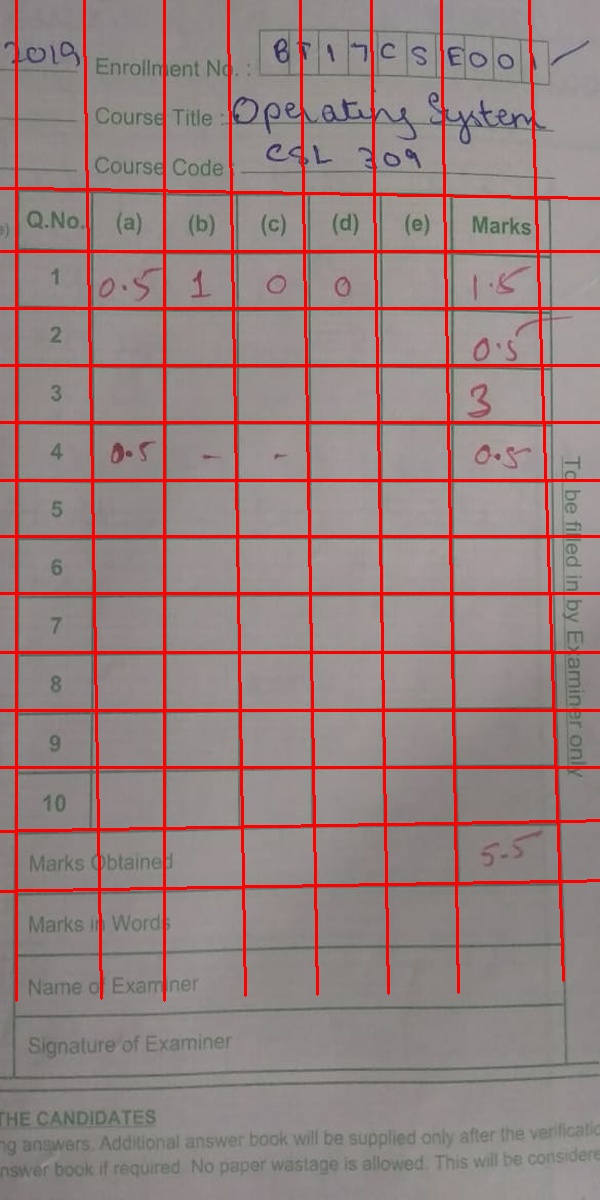 2019 Enrollment No. : BT17CSE001
Course Title : Operating System
Course Code : CSL 309
Q.No. (a) (b) (c) (d) (e) Marks
1 0.5 1 0 0 1.5
2 0.5
3 3
4 0.5 - - 0.5
5
6
7
8
9
10
Marks Obtained 5.5
Marks in Words
Name of Examiner
Signature of Examiner
To be filled in by Examiner only
THE CANDIDATES
ng answers. Additional answer book will be supplied only after the verificatio
nswer book if required. No paper wastage is allowed. This will be considere